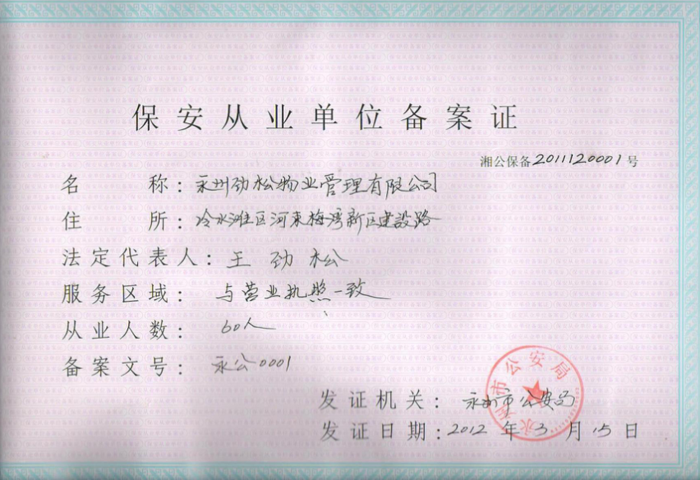 保安从业单位备案证
湘公保备2011120001号
名称：永州劲松物业管理有限公司
住所：冷水滩区河东梅湾新区建设路
法定代表人：王劲松
服务区域：与营业执照一致
从业人数：60人
备案文号：永公0001
发证机关：永州市公安局
发证日期：2012年3月15日
永州市公安局